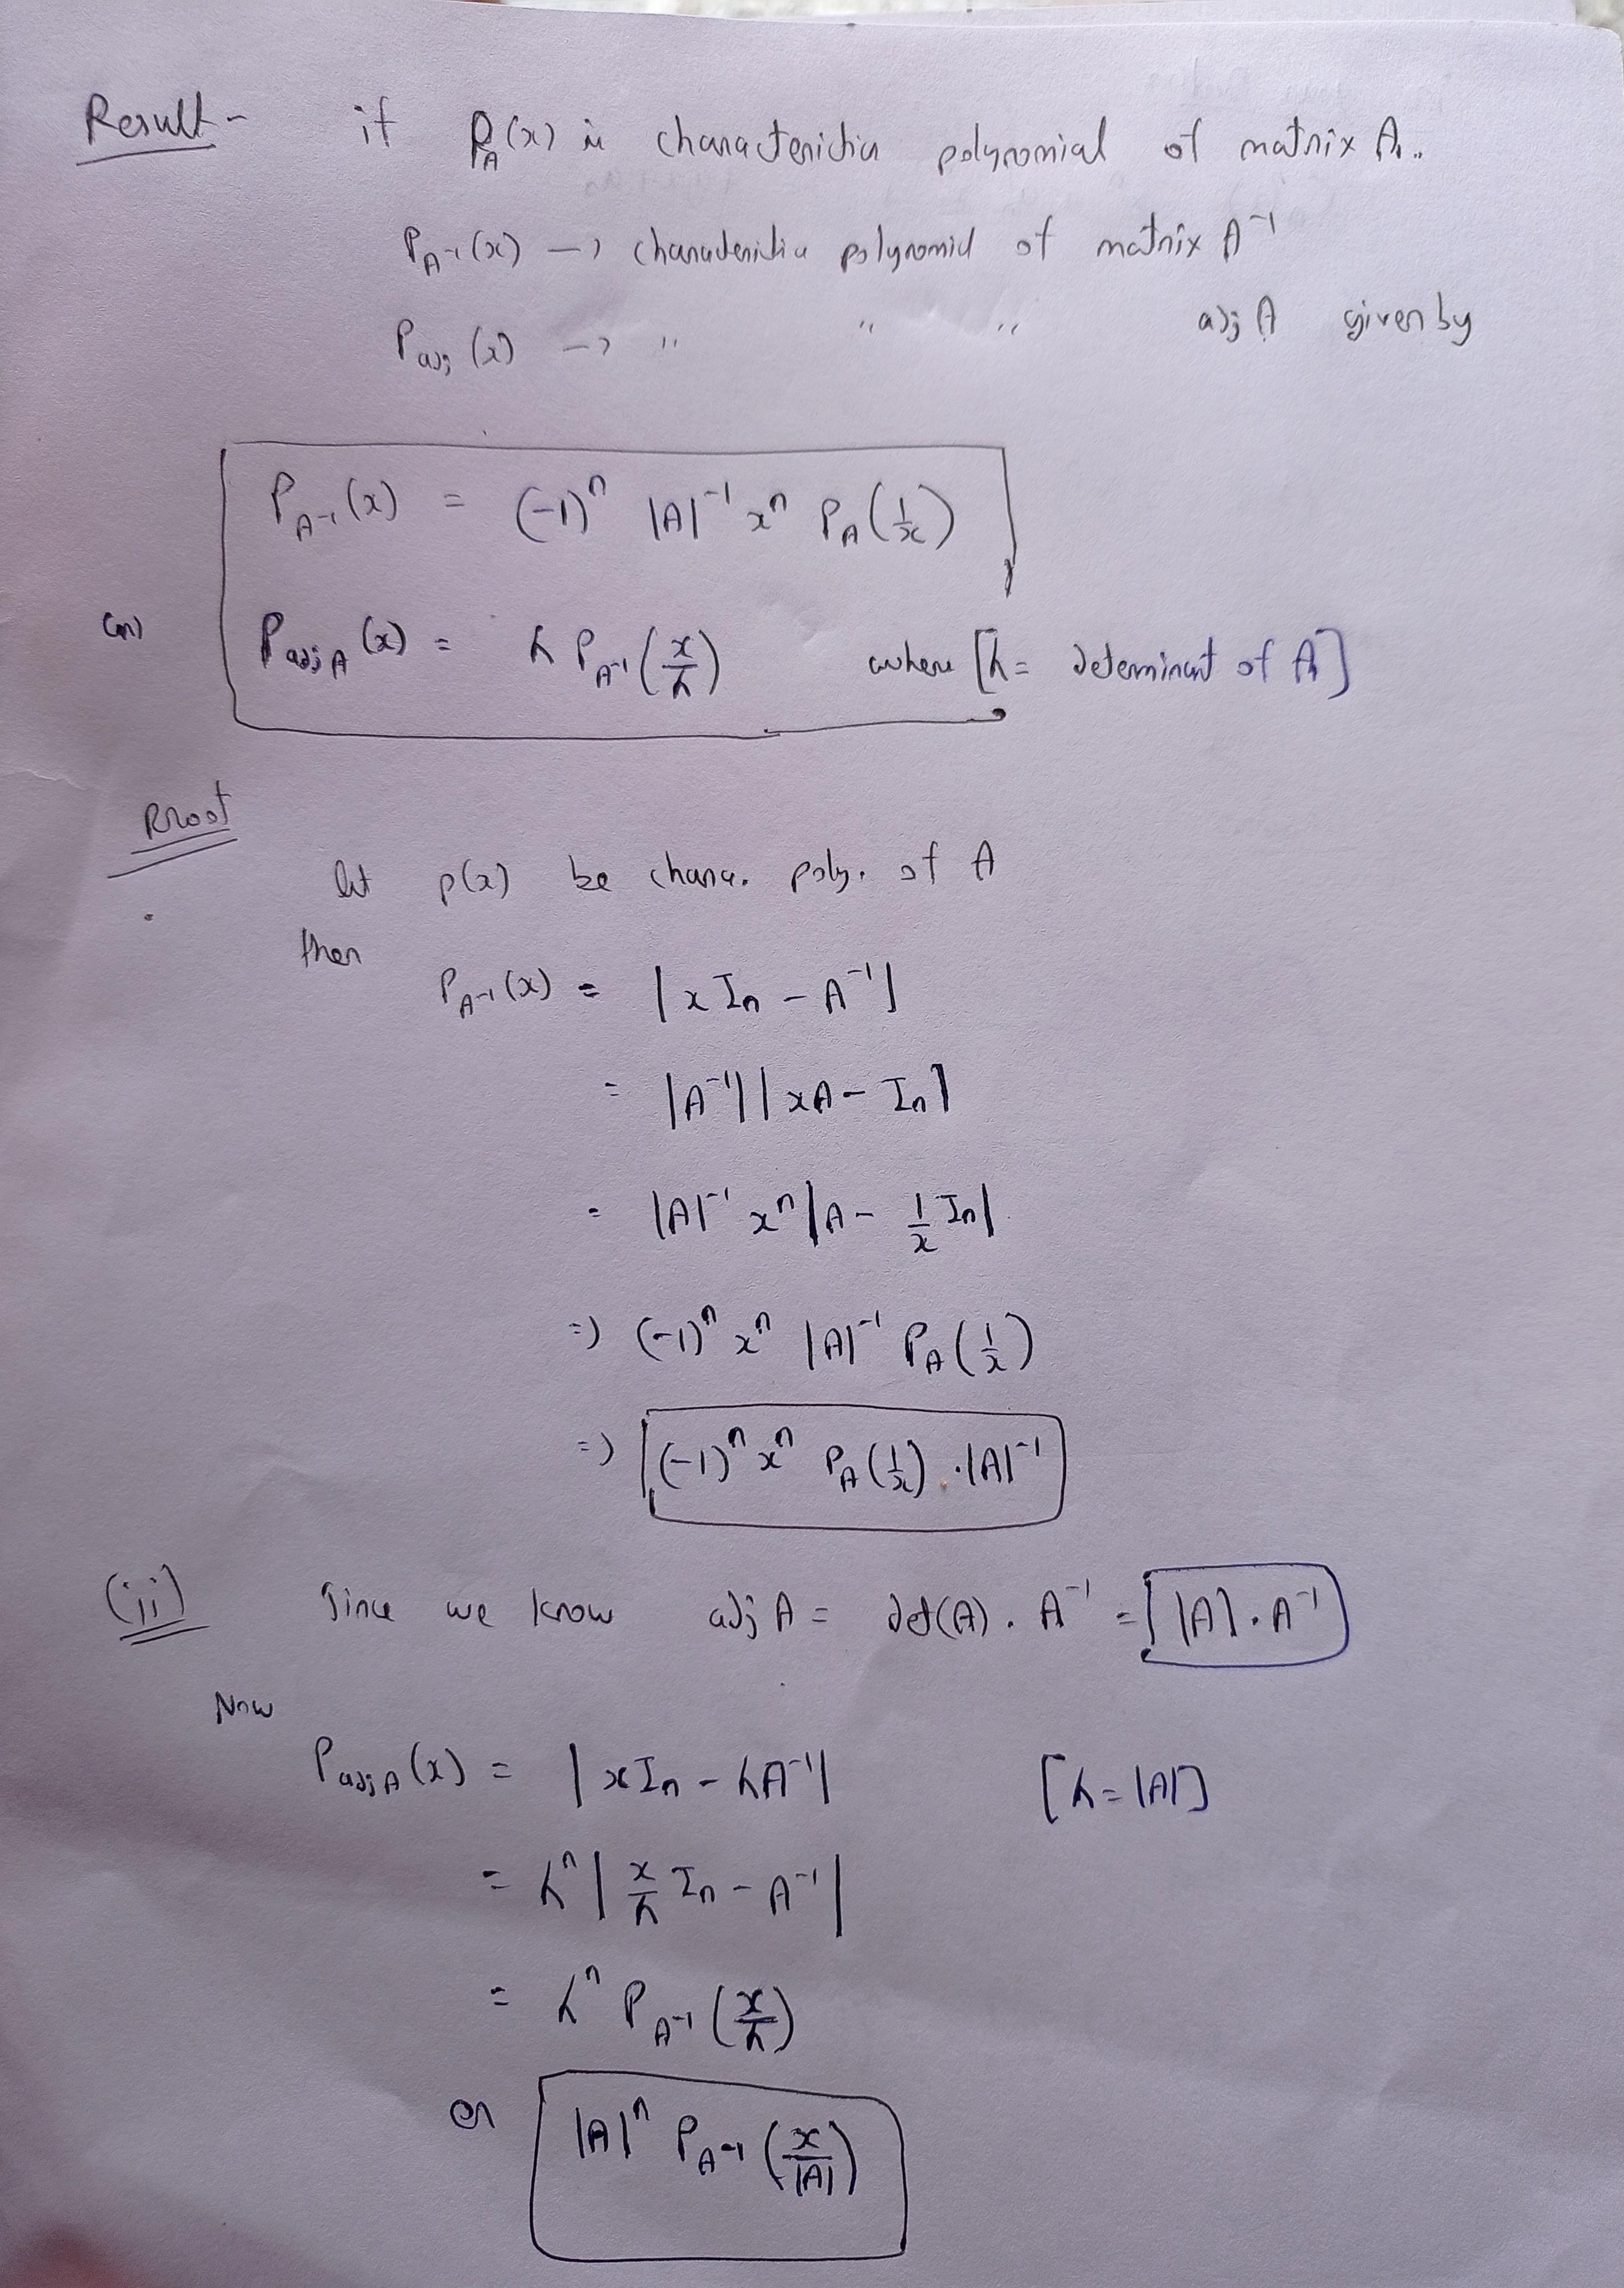 Result - if P_A(x) is characteristic polynomial of matrix A.
P_A⁻¹(x) → characteristic polynomial of matrix A⁻¹
P_adj(x) → " " " adj A given by
P_A⁻¹(x) = (-1)ⁿ |A|⁻¹ xⁿ P_A(1/x)
P_adj A(x) = h P_A⁻¹(x/h) where [h = determinant of A]
Proof
let p(x) be chara. poly. of A
then
P_A⁻¹(x) = |x Iₙ - A⁻¹|
= |A⁻¹| |xA - Iₙ|
= |A|⁻¹ xⁿ |A - 1/x Iₙ|
=) (-1)ⁿ xⁿ |A|⁻¹ P_A(1/x)
=) (-1)ⁿ xⁿ P_A(1/x) . |A|⁻¹
(ii) Since we know adj A = det(A) . A⁻¹ = |A| . A⁻¹
Now
P_adj A(x) = |x Iₙ - hA⁻¹| [h = |A|]
= hⁿ |x/h Iₙ - A⁻¹|
= hⁿ P_A⁻¹(x/h)
or |A|ⁿ P_A⁻¹(x/|A|)